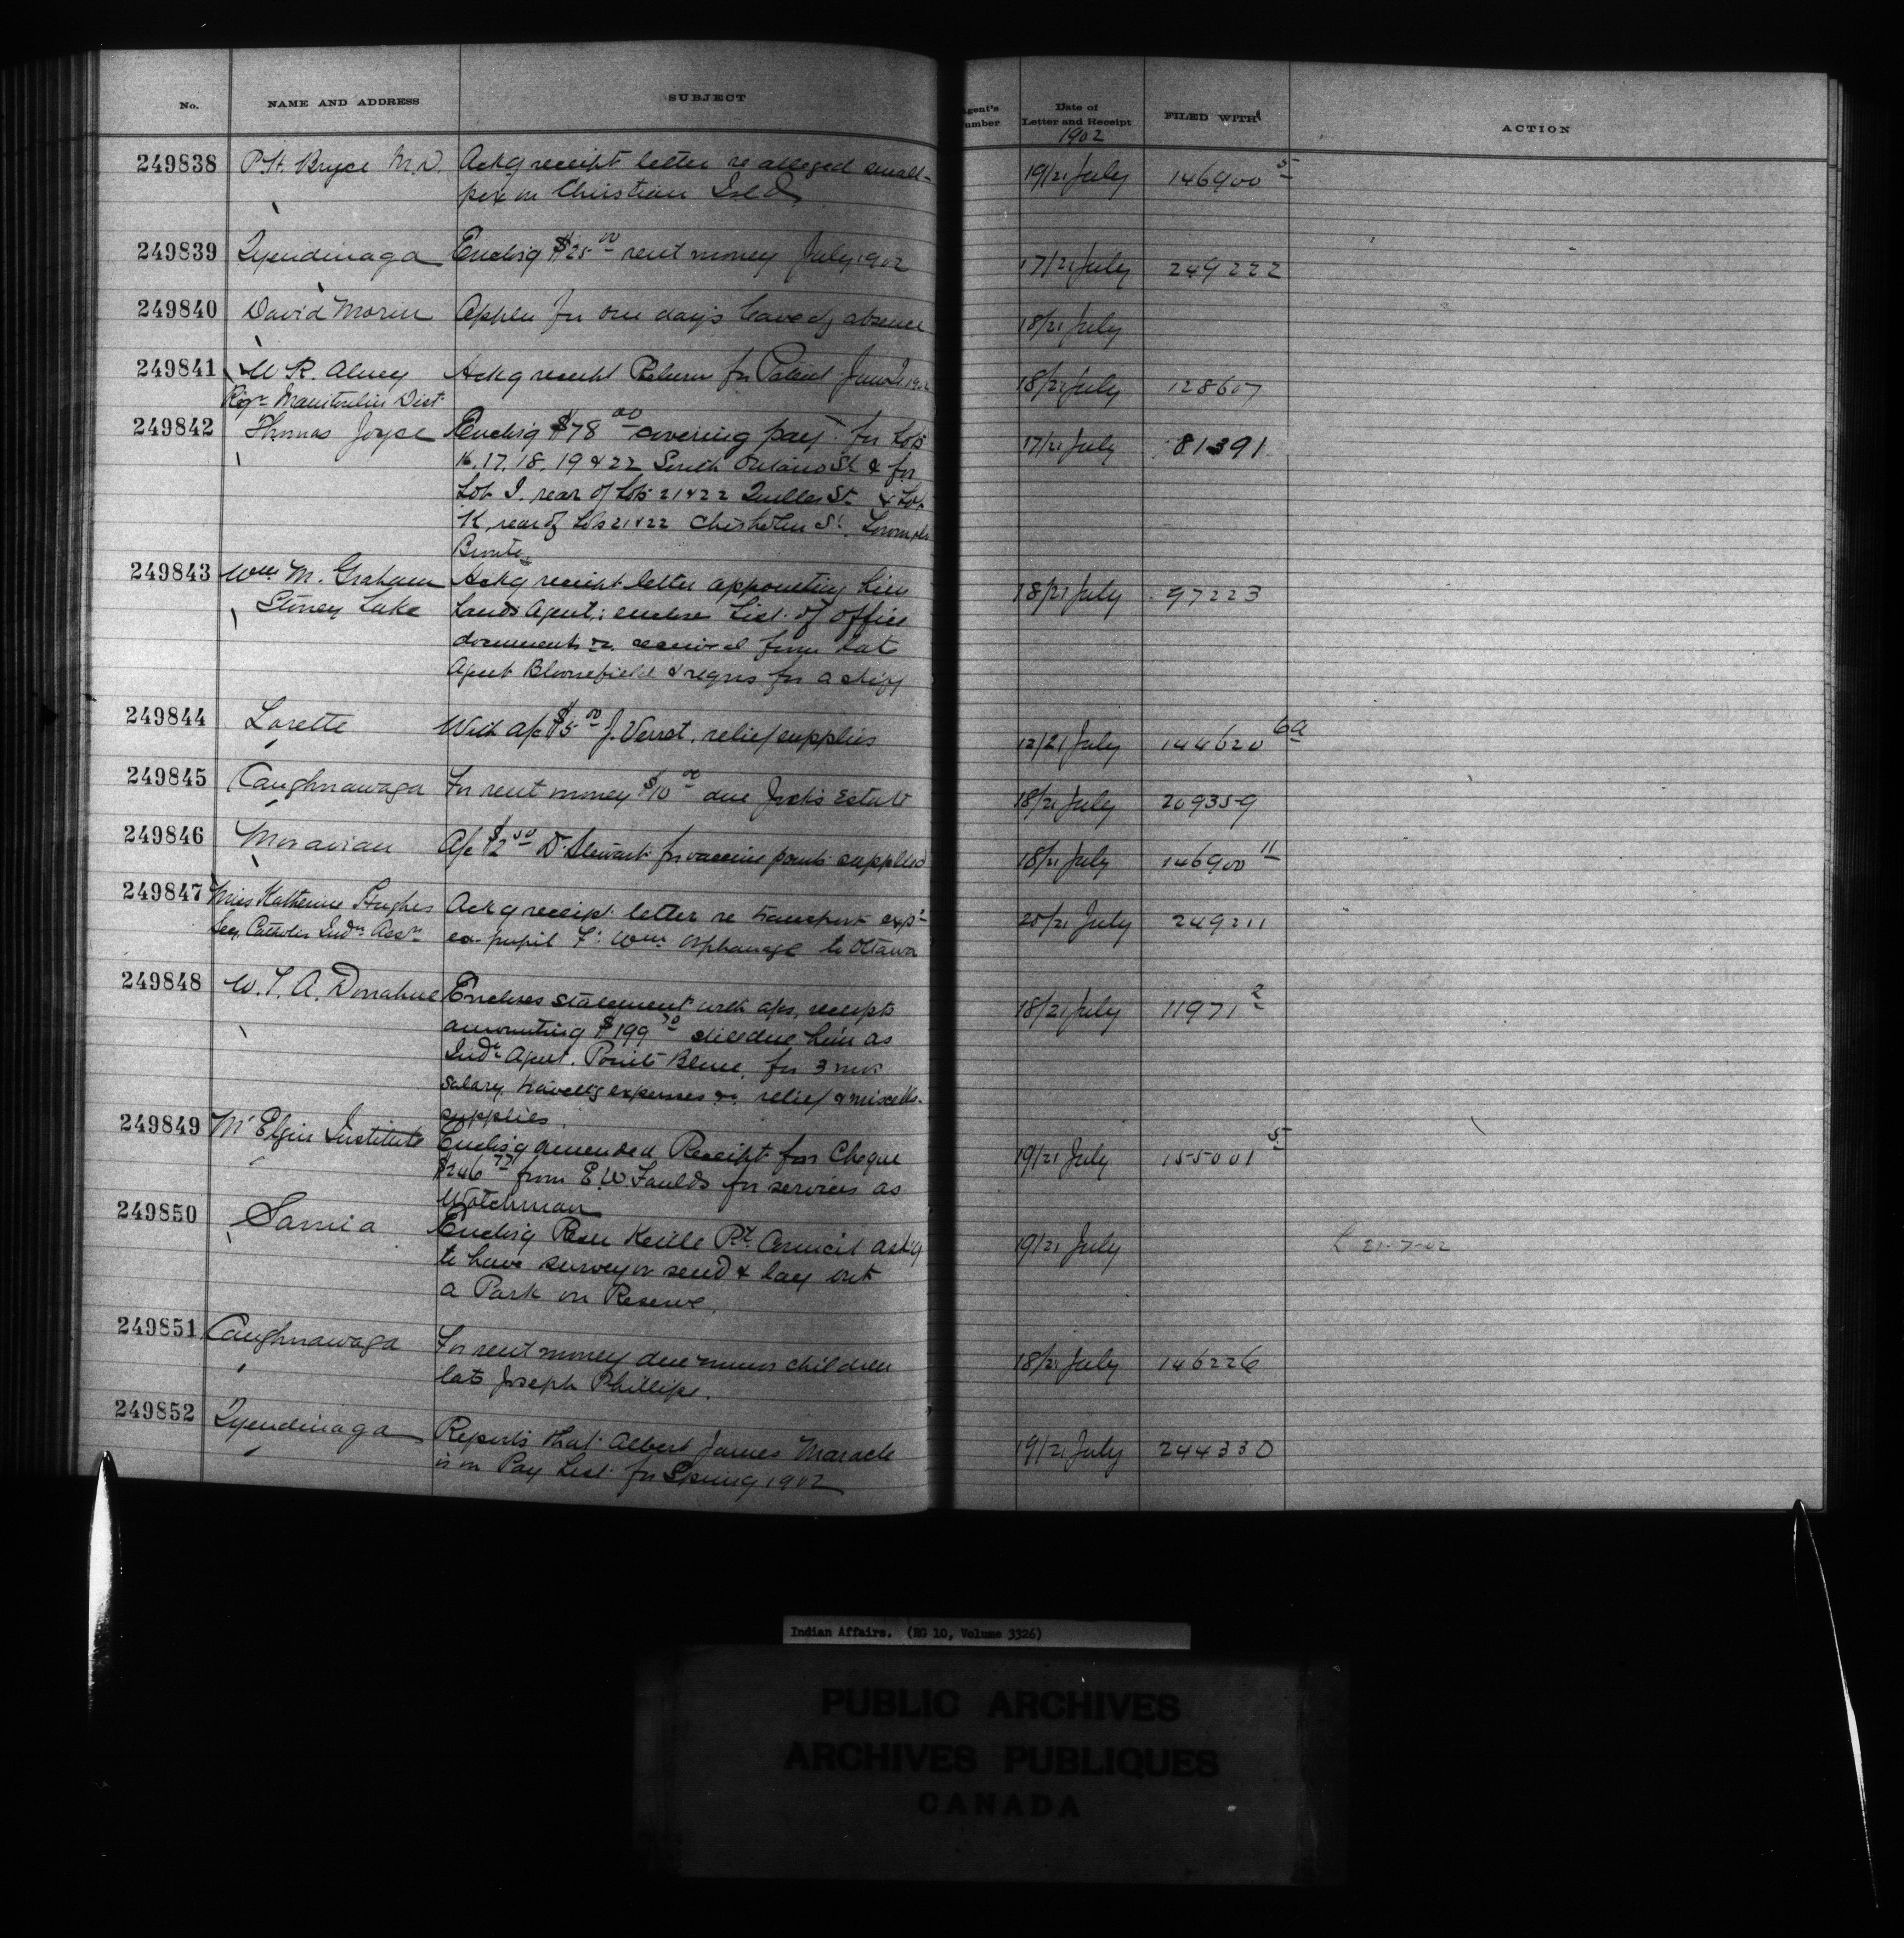 No. NAME AND ADDRESS SUBJECT Agent's Number Date of Letter and Receipt FILED WITH ACTION
1902
249838 P.H. Bryce M.D. Ackg receipt letter re alleged small- 19/21 July 146900 5
pox on Christian Isld
249839 Tyendinaga Enclsg $25 00 rent money July 1902 17/21 July 249222
240840 David Morin Appln for one day's leave of absence 18/21 July
249841 W R. Abrey Ackg receipt Returns for Patent June 1902 18/21 July 128607
Regr Manitoulin Dist
249842 Thomas Joyce Enclsg $78 00 covering payt for Lots 17/21 July 81391
16. 17. 18. 19 & 22 South Ontario St & for
Lot I. rear of Lots 21 & 22 St & Lot
K, rear of Lots 21 & 22 Chisholm St.
Bronte.
249843 Wm M. Graham Ackg receipt letter appointing him 18/21 July 97223
Stoney Lake Lands Agent; enclose List of office
documents &c. received from late
Agent Bloomefield & reqns for a
249844 Lorette With a/c $5 00 J. Verret, relief supplies 12/21 July 144620 6a
249845 Caughnawaga For rent money $10 00 due Jocks Estate 18/21 July 209359
249846 Moravian A/c $2 50 Dr Stewart for vaccine points supplied 18/21 July 146900 11
249847 Miss Katherine Hughes Ackg receipt letter re transport exps 20/21 July 249211
Secy Catholic Indn Assn ex-pupil Ft Wm Orphanage to Ottawa
249848 W. T. A. Donahue Encloses statement with a/cs, receipts 18/21 July 11971 2
amounting $199 70 due him as
Indn Agent. Pointe Bleue, for 3 mos
salary, travellg expenses &c. relief & miscells.
supplies.
249849 Mt Elgin Institute Enclsg amended Receipt for Cheque 19/21 July 155001 5
$246 77 from E.W. Faulds for services as
Watchman
249850 Sarnia Enclsg Resn Kettle Pt. Council askg 19/21 July L 21-7-02
to have surveyor send & lay out
a Park on Reserve.
249851 Caughnawaga For rent money due minor children 18/21 July 146226
late Joseph Phillips.
249852 Tyendinaga Reports that Albert James Maracle 19/21 July 244330
is on Pay List for Spring 1902
Indian Affairs. (RG 10, Volume 3326)
PUBLIC ARCHIVES
ARCHIVES PUBLIQUES
CANADA